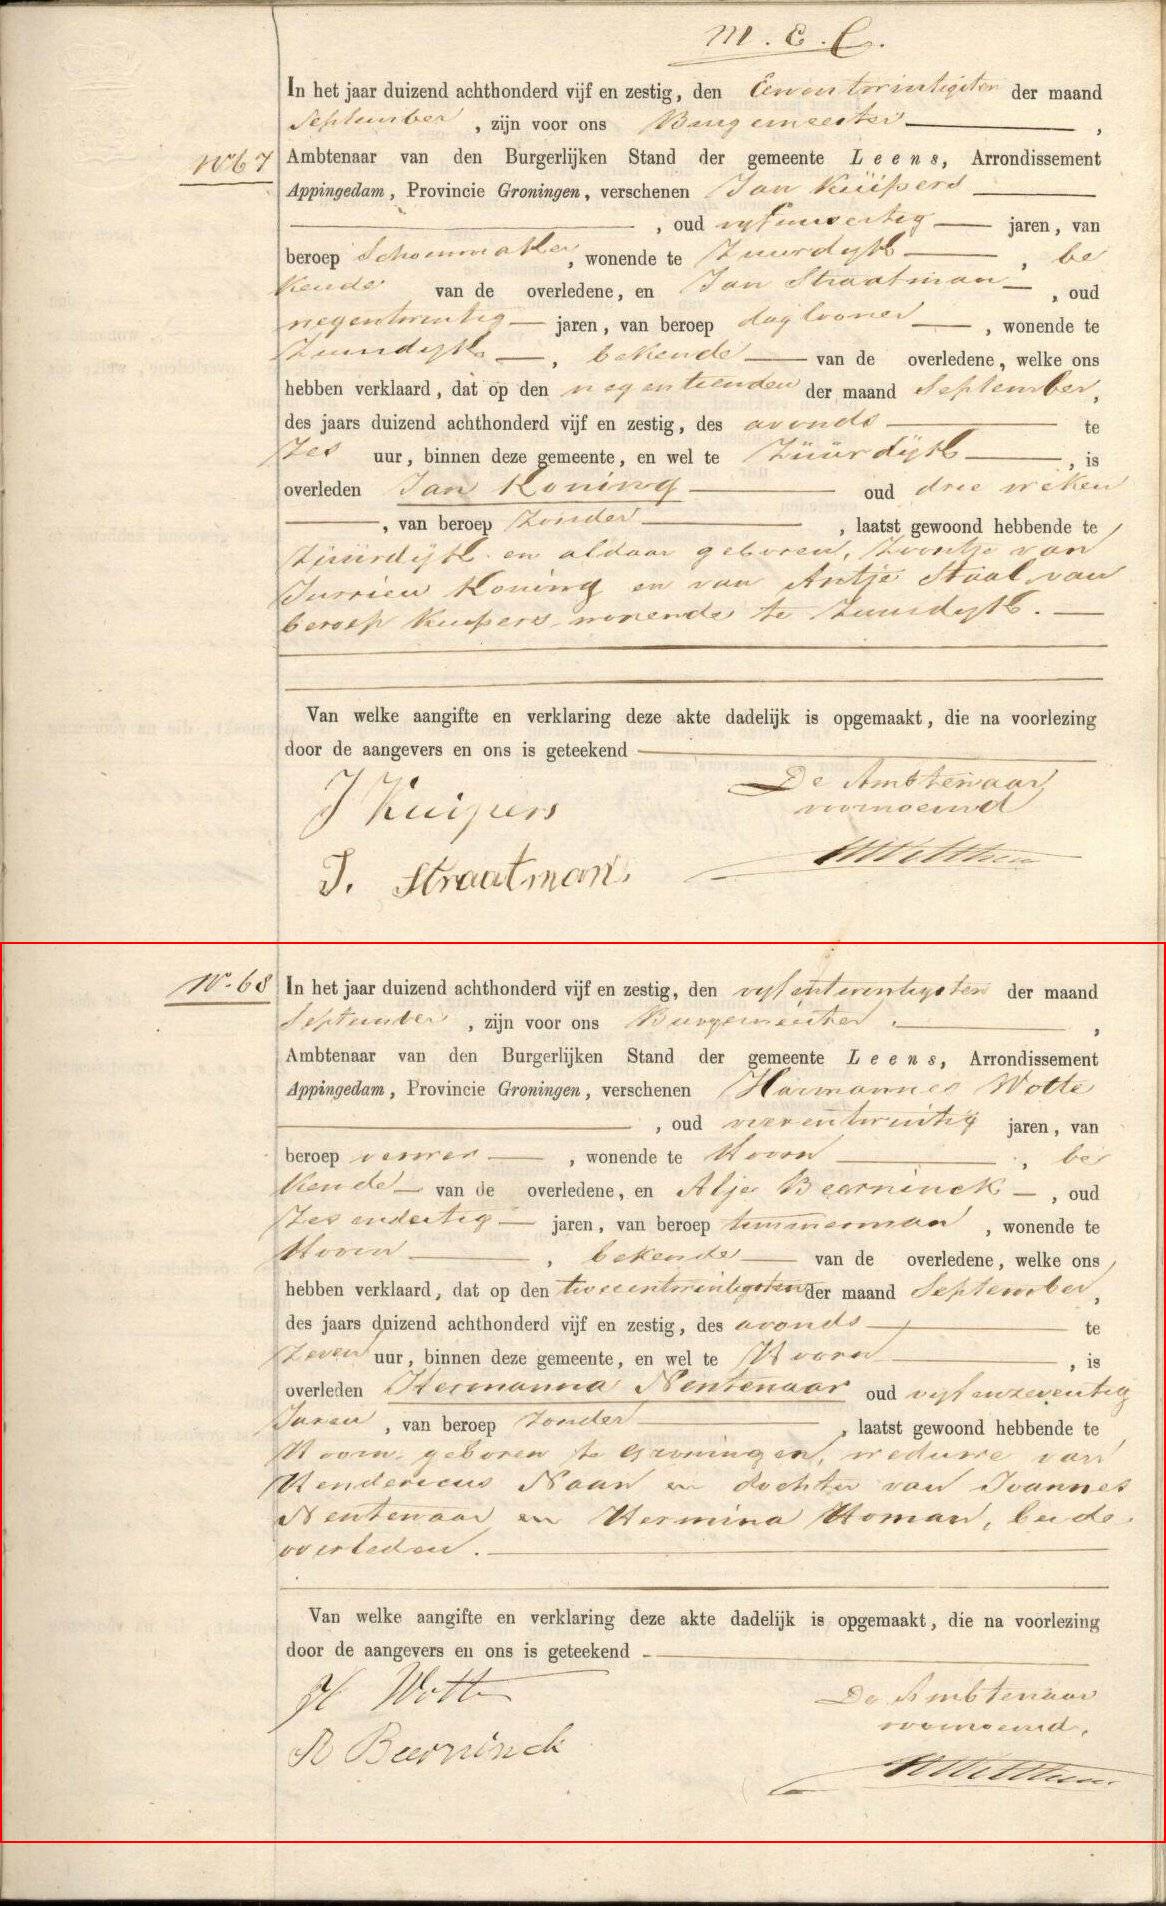 M. E. C.
In het jaar duizend achthonderd vijf en zestig, den Eenentwintigsten der maand
September, zijn voor ons Burgemeester,
N° 67
Ambtenaar van den Burgerlijken Stand der gemeente Leens, Arrondissement
Appingedam, Provincie Groningen, verschenen Jan Kuipers
, oud vyfenveertig jaren, van
beroep Schoenmaker, wonende te Zuurdyk, be
kende van de overledene, en Jan Straatman, oud
negentwintig jaren, van beroep daglooner, wonende te
Zuurdyk, bekende van de overledene, welke ons
hebben verklaard, dat op den negentienden der maand September,
des jaars duizend achthonderd vijf en zestig, des avonds te
Zes uur, binnen deze gemeente, en wel te Zuurdyk, is
overleden Jan Koning oud drie weken
, van beroep Zonder, laatst gewoond hebbende te
Zuurdyk en aldaar geboren, Zoontje van
Jurrien Koning en van Antje Staal, van
beroep Kuipers wonende te Zuurdyk.
Van welke aangifte en verklaring deze akte dadelijk is opgemaakt, die na voorlezing
door de aangevers en ons is geteekend
De Ambtenaar
J Kuipers
voornoemd
J. Straatman
N° 68
In het jaar duizend achthonderd vijf en zestig, den vyfentwentigsten der maand
September, zijn voor ons Burgemeester,
Ambtenaar van den Burgerlijken Stand der gemeente Leens, Arrondissement
Appingedam, Provincie Groningen, verschenen Harmannes Wotte
, oud vierentwintig jaren, van
beroep verwer, wonende te Hoorn, be
kende van de overledene, en Alje Beerninck, oud
Zesendertig jaren, van beroep timmerman, wonende te
Hoorn, bekende van de overledene, welke ons
hebben verklaard, dat op den tweeentwintigsten der maand September,
des jaars duizend achthonderd vijf en zestig, des avonds te
Zeven uur, binnen deze gemeente, en wel te Hoorn, is
overleden Hermanna Nentenaar oud vyfenzeventig
Jaren, van beroep Zonder, laatst gewoond hebbende te
Hoorn, geboren te Groningen, weduwe van
Hendericus Naan en dochter van Joannes
Nentenaar en Hermina Homan, beide
overleden.
Van welke aangifte en verklaring deze akte dadelijk is opgemaakt, die na voorlezing
door de aangevers en ons is geteekend
H Wotte
De Ambtenaar
voornoemd.
A Beerninck